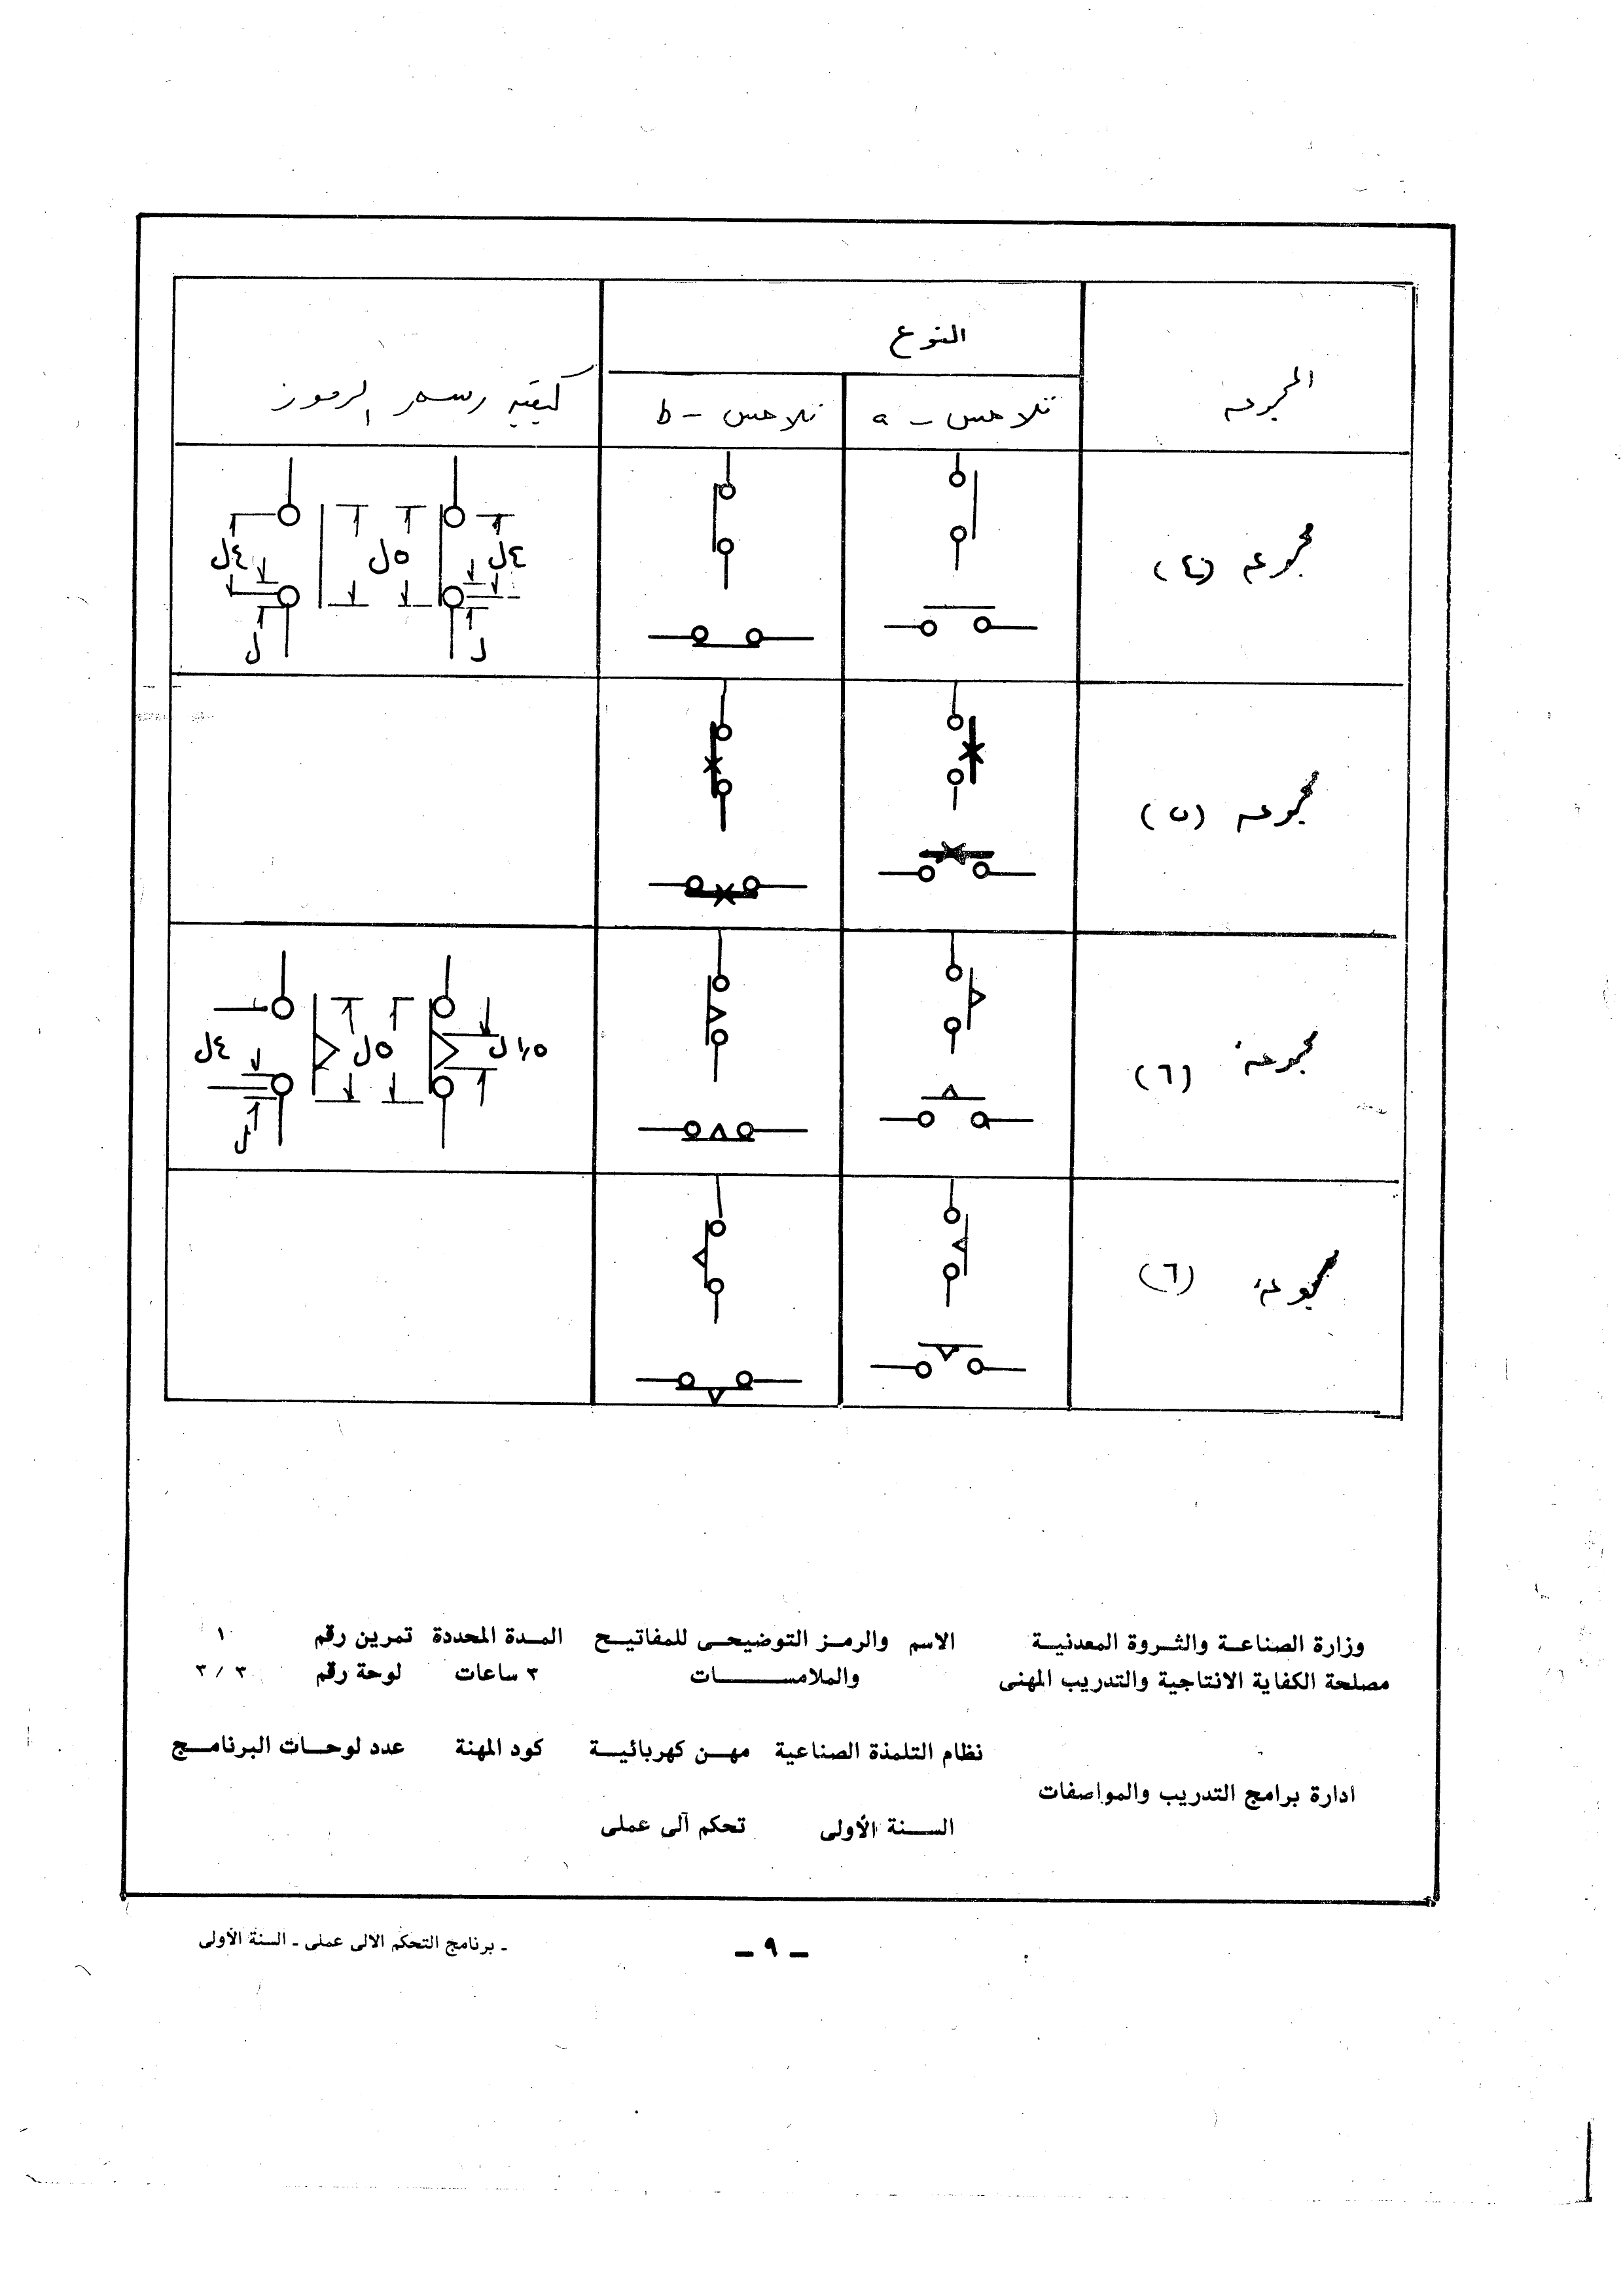 النوع
المجموعه
تلامس - a
تلامس - b
كيفيه رسم الرموز
مجموعه (٤)
٤ل
٥ل
٤ل
ل
ل
مجموعه (٥)
مجموعة (٦)
١٫٥ل
٥ل
٤ل
ل
مجموعة (٦)
وزارة الصناعة والثروة المعدنية الاسم والرمز التوضيحى للمفاتيح المدة المحددة تمرين رقم ١
مصلحة الكفاية الانتاجية والتدريب المهنى والملامسات ٣ ساعات لوحة رقم ٣ / ٣
نظام التلمذة الصناعية مهن كهربائية كود المهنة عدد لوحات البرنامج
ادارة برامج التدريب والمواصفات
السنة الأولى تحكم آلى عملى
- ٩ -
- برنامج التحكم الالى عملى - السنة الأولى